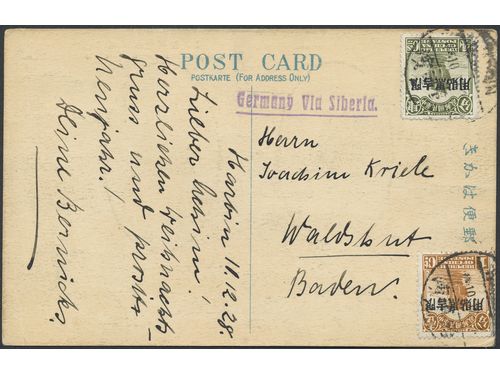 POST CARD
POSTKARTE (FOR ADDRESS ONLY)
Germany Via Siberia.
Harbin 11.12.28.
Lieber
Herzlichen Weihnachts-
gruss und prosit
Neujahr!
Deine Bernicks.
Herrn
Joachim Kriele
Waldshut
Baden.
きがは便郵
限吉黑貼用
限吉黑貼用